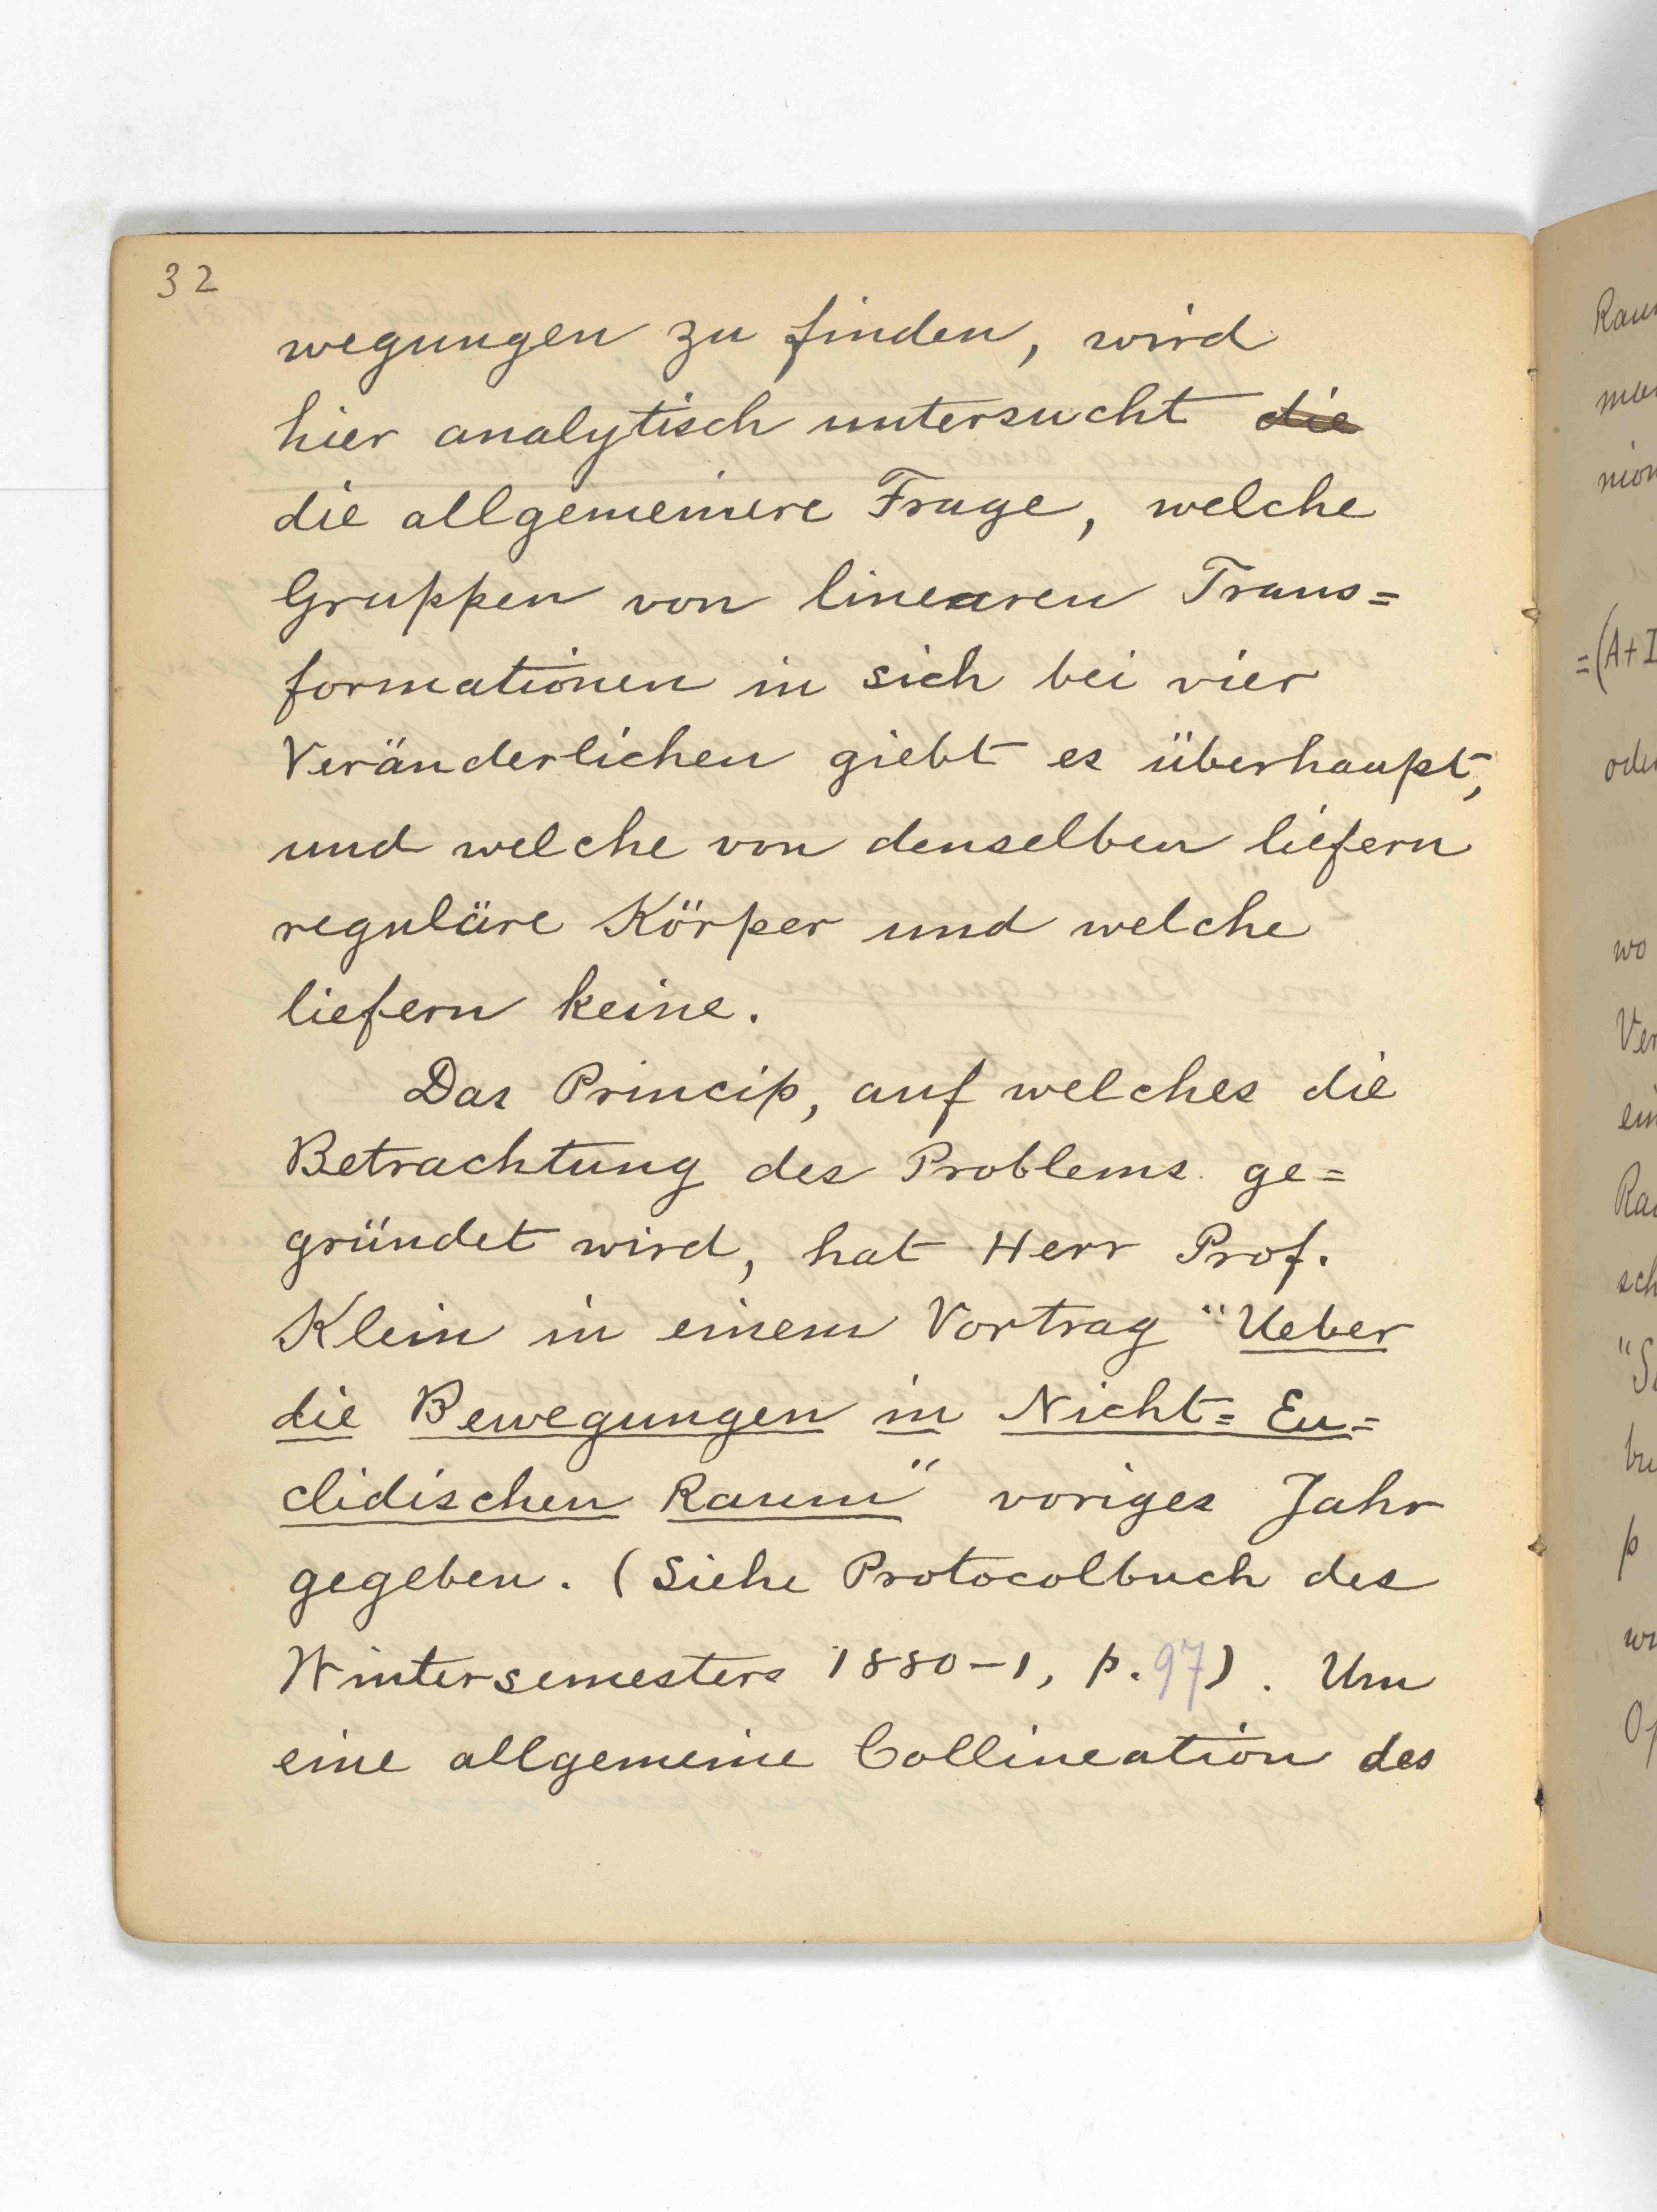 32
wegungen zu finden, wird
hier analytisch untersucht die
die allgemeinere Frage, welche
Gruppen von linearen Trans=
formationen in sich bei vier
Veränderlichen giebt es überhaupt,
und welche von denselben liefern
reguläre Körper und welche
liefern keine.
Das Princip, auf welches die
Betrachtung des Problems ge=
gründet wird, hat Herr Prof.
Klein in einem Vortrag "Ueber
die Bewegungen in Nicht=Eu=
clidischen Raum" voriges Jahr
gegeben. (Siehe Protocolbuch des
Wintersemesters 1880-1, p. 97). Um
eine allgemeine Collineation des
=(A+
wo